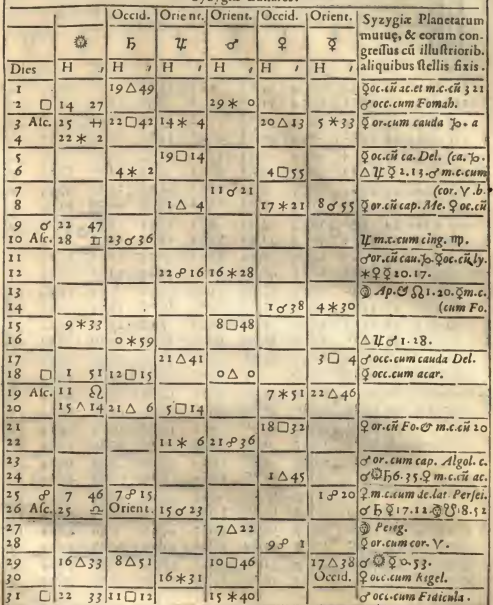 Occid. Orient. Orient. Occid. Orient. Syzygiæ Planetarum
☼ ♄ ♃ ♂ ♀ ☿ mutuę, & eorum con
greſſus cũ illuſtriorib.
Dies H ′ H ′ H ′ H ′ H ′ H ′ aliquibus ſtellis fixis.
1 19△49 ☿oc.cũ ac.et m.c.cũ 3 21
2 □ 14 27 29✶ 0 ♂occ.cum Fomah.
3 Aſc. 25 ♓ 22□42 14✶ 4 20△13 5✶33 ☿or.cum cauda ♑. a
4 22✶ 2
5 19□14 ☿oc.cũ ca.Del. (ca.♑.
6 4✶ 2 4□55 △♃☿2.13.♂m.c.cum
7 11☌21 (cor.♈.b.
8 1△ 4 17✶21 8☌55 ☿or.cũ cap. Me. ♀oc.cũ
9 ☌ 22 47
10 Aſc. 28 ♊ 23☌36 ♃m.c.cum cing. ♍.
11 ♂or.cũ cau.♑.☿oc.cũ ly.
12 22☍16 16✶28 ✶♀☿20.17.
13 Ap.& ☊1.20.☿m.c.
14 1☌38 4✶30 (cum Fo.
15 9✶33 8□48
16 0✶59 △♃♂1.28.
17 21△41 3□ 4 ♂occ.cum cauda Del.
18 □ 1 51 12□15 0△ 0 ☿occ.cum acar.
19 Aſc. 11 ♌ 7✶51 22△46
20 15△14 21△ 6 5□14
21 18□32 ♀or.cũ Fo.& m.c.cũ 20
22 11✶ 6 21☍36
23 ♂or.cum cap. Algol. c.
24 1△45 ☌☼♄6.35.♀m.c.cũ ac.
25 ☍ 7 46 7☍15 1☍20 ♀m.c.cum de.lat Perſei.
26 Aſc. 25 ♎ Orient. 15☌23 ☌♄☿17.12. ☋.8.52
27 7△22 Perig.
28 9☍ 1 ☿or.cum cor.♈.
29 16△33 8△51 10□46 17△38 ☌☼☿0.53.
30 16✶31 Occid. ♀occ.cum Rigel.
31 □ 22 33 11□12 15✶40 ♂occ.cum Fidicula.